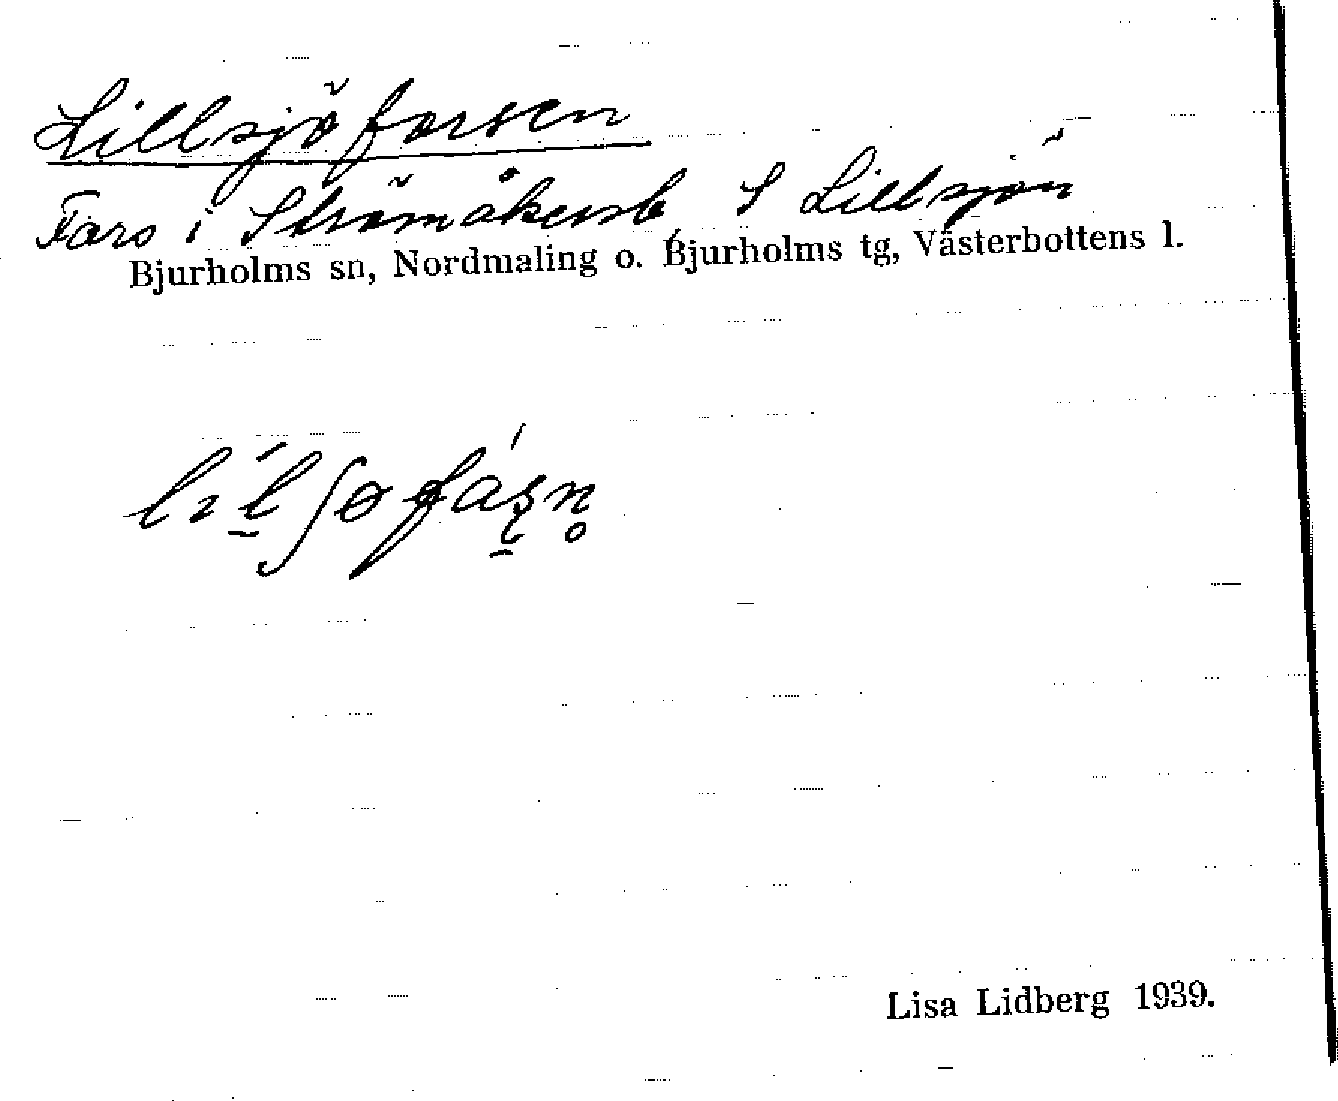 Lillsjöforsen
Fors i Strömåkersb, S Lillsjön
Bjurholms sn, Nordmaling o. Bjurholms tg, Västerbottens l.
Lisa Lidberg 1939.